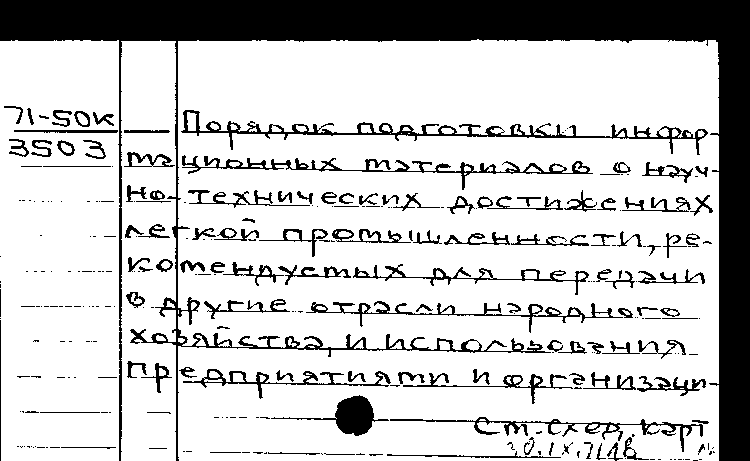 71-50к
3503
Порядок подготовки инфор-
мационных материалов о науч-
но-технических достижениях
легкой промышленности, ре-
комендуемых для передачи
в другие отрасли народного
хозяйства, и использования
предприятиями и организаци-
См. след. карт
30.IX.71